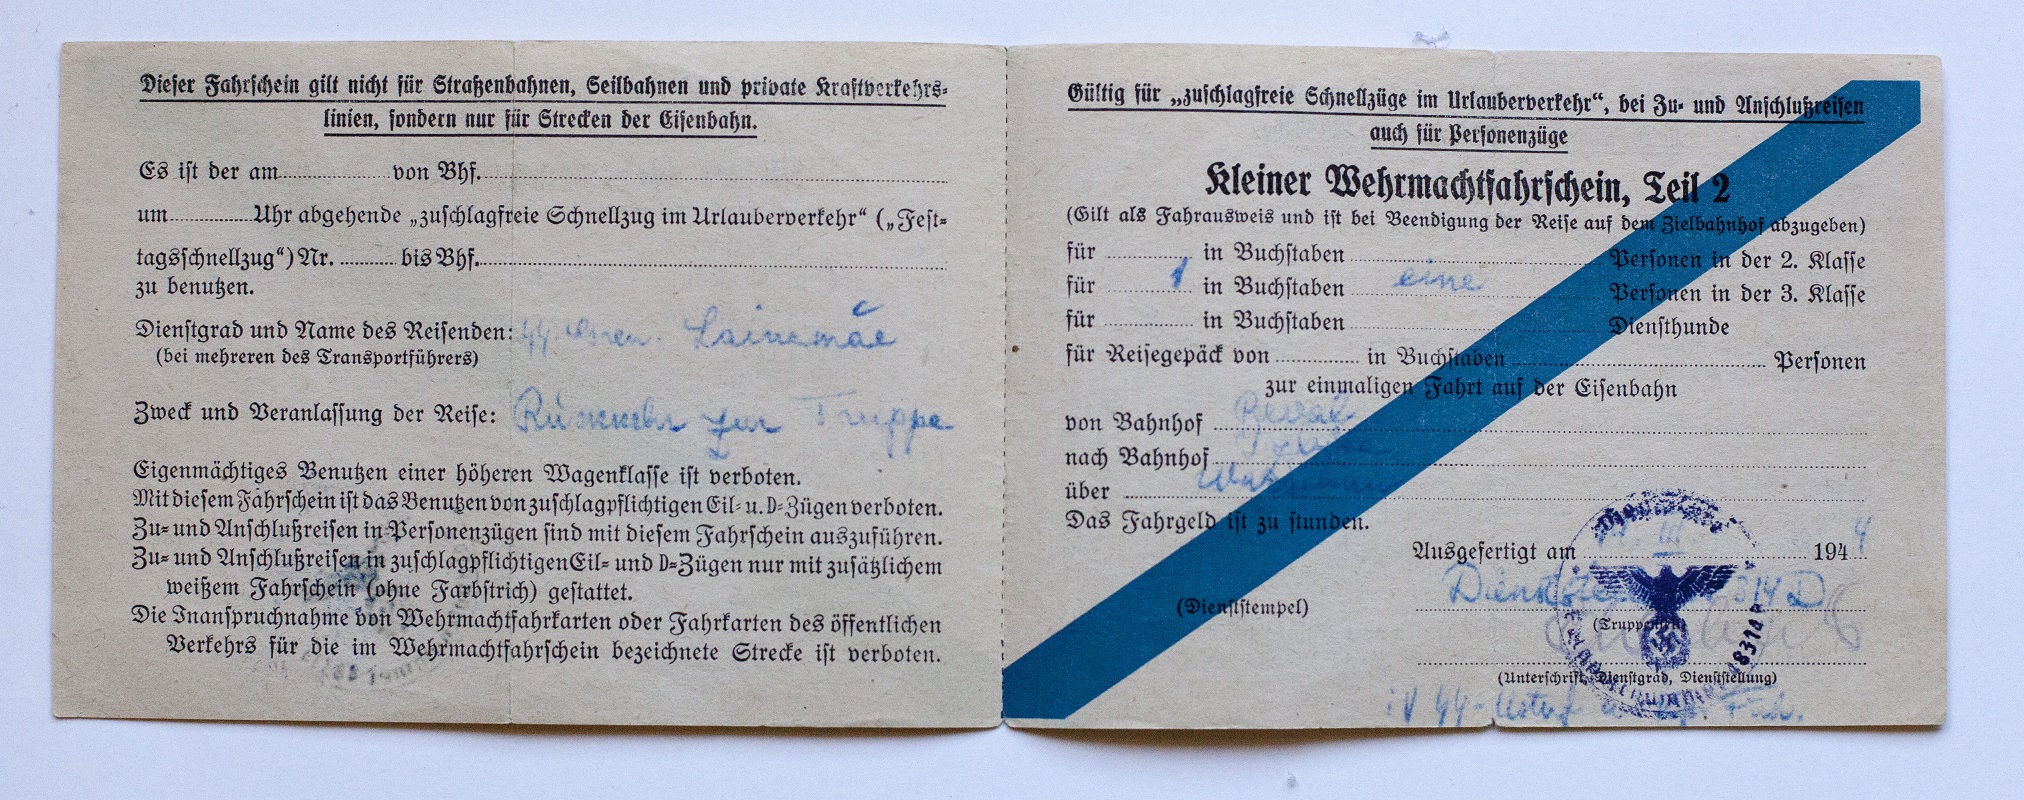 Dieser Fahrschein gilt nicht für Straßenbahnen, Seilbahnen und private Kraftverkehrs-
linien, sondern nur für Strecken der Eisenbahn.
Es ist der am von Bhf.
um Uhr abgehende „zuschlagfreie Schnellzug im Urlauberverkehr“ („Fest-
tagsschnellzug“) Nr. bis Bhf.
zu benutzen.
Dienstgrad und Name des Reisenden: Lainemäe
(bei mehreren des Transportführers)
Zweck und Veranlassung der Reise: Rückkehr zur Truppe
Eigenmächtiges Benutzen einer höheren Wagenklasse ist verboten.
Mit diesem Fahrschein ist das Benutzen von zuschlagpflichtigen Eil- u. D-Zügen verboten.
Zu- und Anschlußreisen in Personenzügen sind mit diesem Fahrschein auszuführen.
Zu- und Anschlußreisen in zuschlagpflichtigen Eil- und D-Zügen nur mit zusätzlichem
weißem Fahrschein (ohne Farbstrich) gestattet.
Die Inanspruchnahme von Wehrmachtfahrkarten oder Fahrkarten des öffentlichen
Verkehrs für die im Wehrmachtfahrschein bezeichnete Strecke ist verboten.
Gültig für „zuschlagfreie Schnellzüge im Urlauberverkehr“, bei Zu- und Anschlußreisen
auch für Personenzüge
Kleiner Wehrmachtfahrschein, Teil 2
(Gilt als Fahrausweis und ist bei Beendigung der Reise auf dem Zielbahnhof abzugeben)
für in Buchstaben Personen in der 2. Klasse
für 1 in Buchstaben eine Personen in der 3. Klasse
für in Buchstaben Diensthunde
für Reisegepäck von in Buchstaben Personen
zur einmaligen Fahrt auf der Eisenbahn
von Bahnhof Reval
nach Bahnhof
über
Das Fahrgeld ist zu stunden.
Ausgefertigt am III. 1944
(Dienststempel)
(Truppenteil)
48314
(Unterschrift, Dienstgrad, Dienststellung)